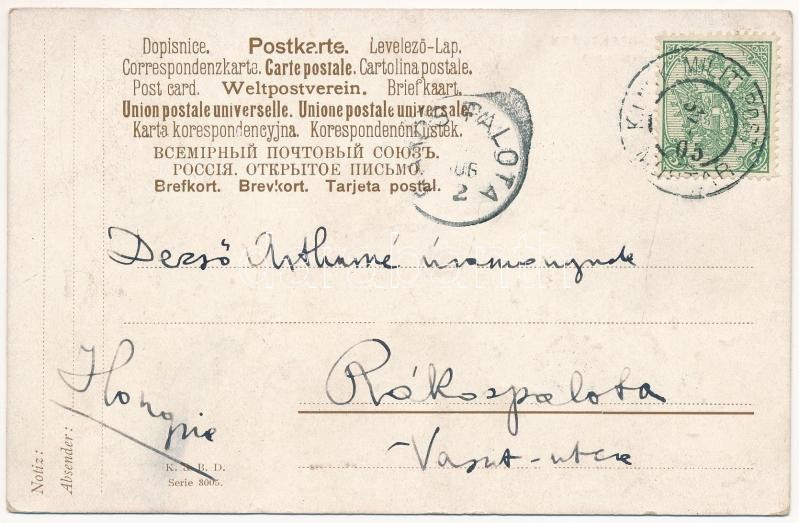 Dopisnice. Postkarte. Levelező-Lap.
Correspondenzkarte. Carte postale. Cartolina postale.
Post card. Weltpostverein. Briefkaart.
Union postale universelle. Unione postale universale.
Karta korespondencyjna. Korespondenčni lístek.
ВСЕМІРНЫЙ ПОЧТОВЫЙ СОЮЗЪ.
РОССІЯ. ОТКРЫТОЕ ПИСЬМО.
Brefkort. Brevkort. Tarjeta postal.
MILIT. POST
05
PALOTA
2
Dezső Arthurné úrasszonynak
Rákospalota
Hongrie
Vasut-utca
Notiz:
Absender:
K. & B. D.
Serie 3005.